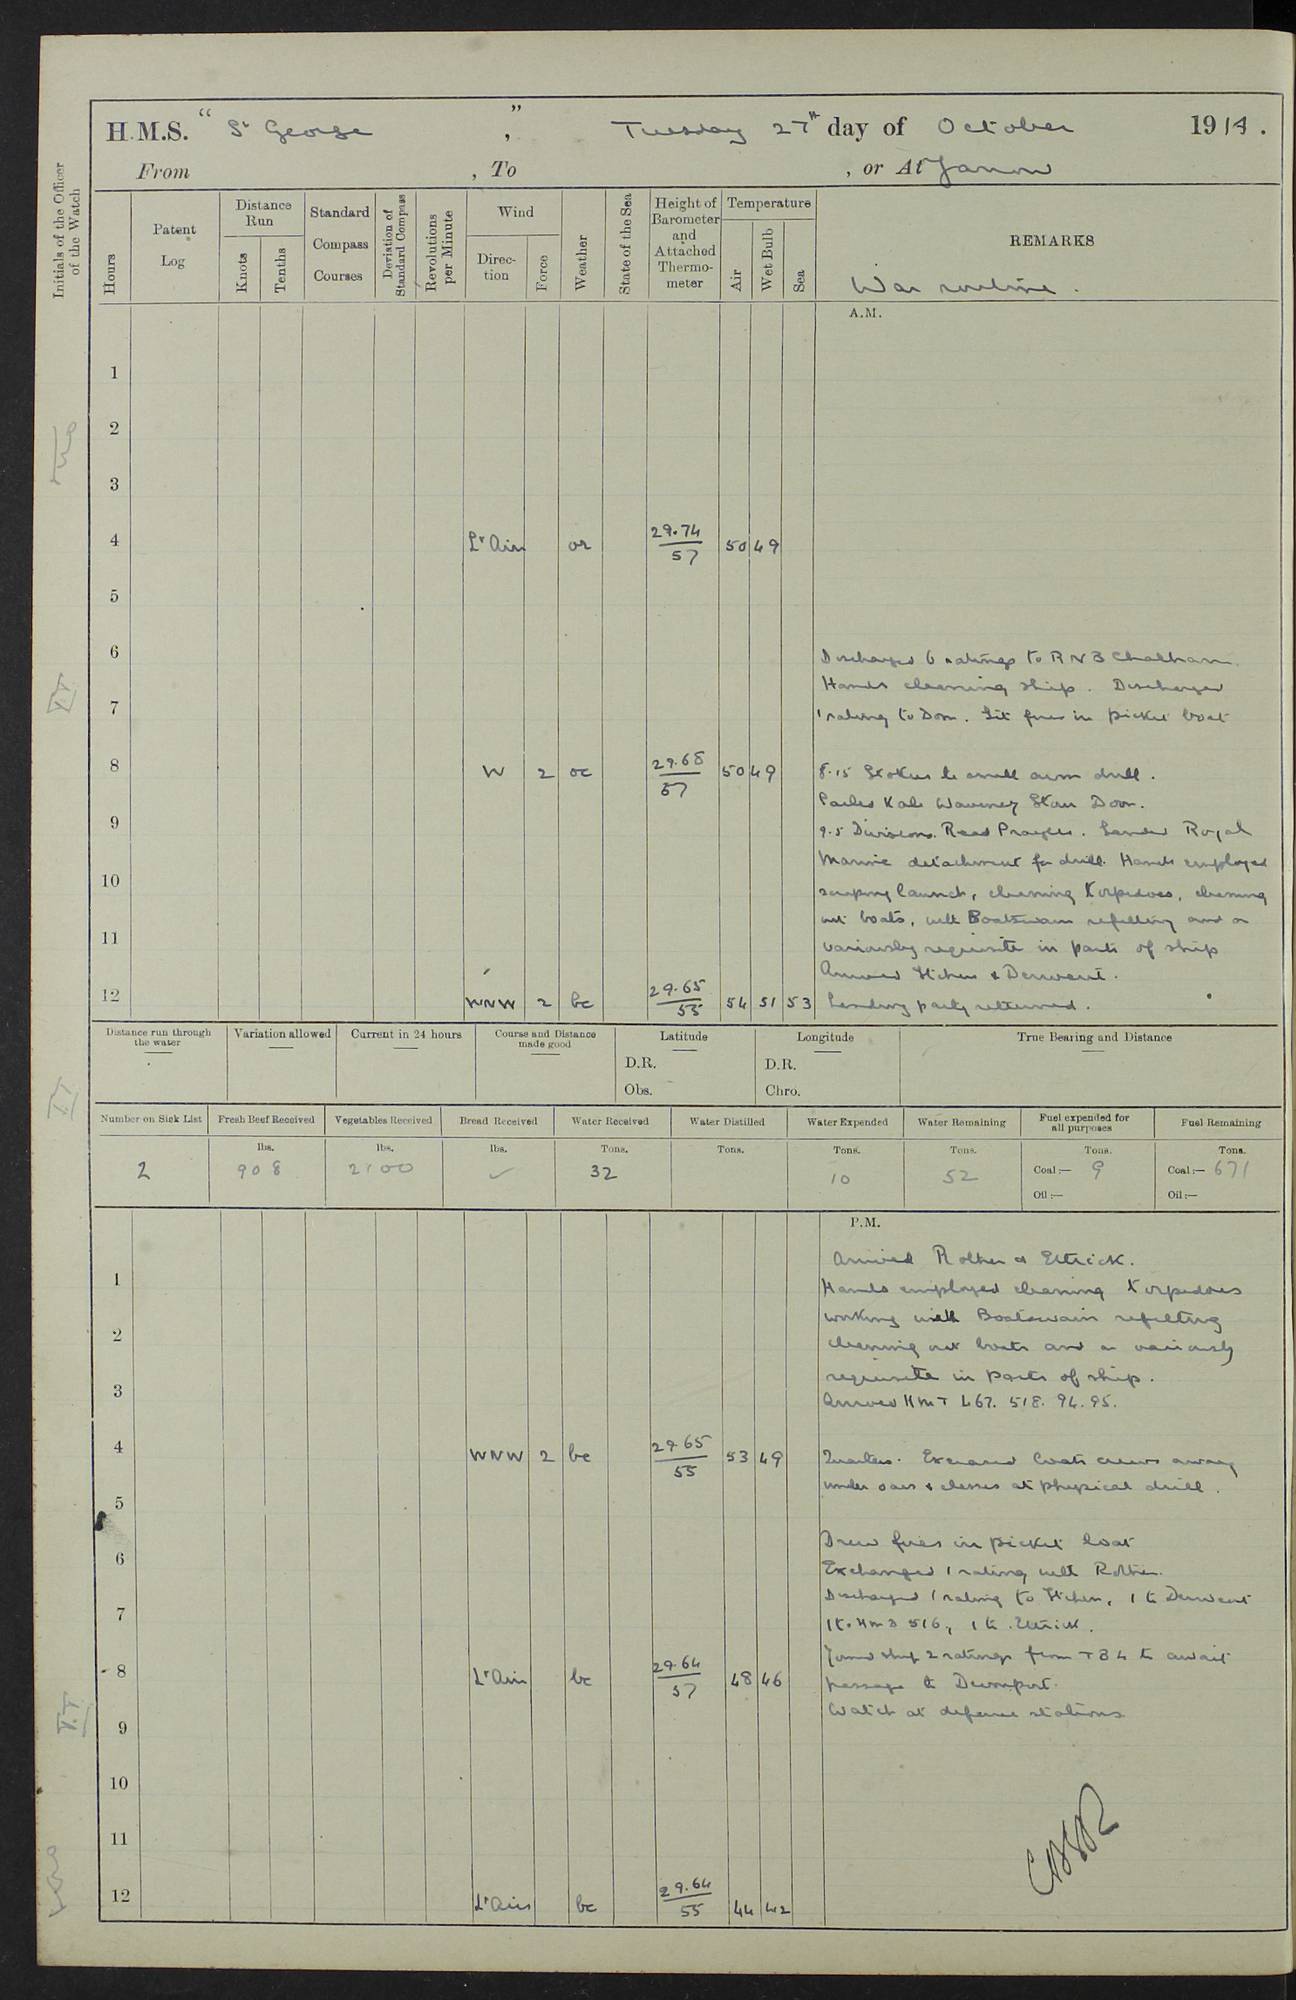 H.M.S. “ St George ” , Tuesday 27th day of October 1914.
From , To , or At Jarrow
Initials of the Officer of the Watch
Hours
Patent Log
Distance Run
Knots
Tenths
Standard Compass Courses
Deviation of Standard Compass
Revolutions per Minute
Wind
Direction
Force
Weather
State of the Sea
Height of Barometer and Attached Thermometer
Temperature
Air
Wet Bulb
Sea
REMARKS
War routine.
A.M.
1
2
3
4 Lt Airs or 29.74 57 50 49
5
6 Discharged 6 ratings to RNB Chatham.
Hands cleaning ship. Discharged
7 1 rating to Doon. Lit fires in picket boat
8 W 2 oc 29.68 57 50 49 8.15 Stokers to small arm drill.
Kale Waveney Stour Doon.
9 9.5 Divisions. Read Prayers. Landed Royal
Marine detachment for drill. Hands employed
10 scraping launch, cleaning torpedoes, cleaning
out boats, with Boatswain refitting and as
11 variously requisite in parts of ship
Arrived Itchen & Derwent.
12 WNW 2 bc 29.65 55 54 51 53 Landing party returned.
Distance run through the water
Variation allowed
Current in 24 hours
Course and Distance made good
Latitude
D.R.
Obs.
Longitude
D.R.
Chro.
True Bearing and Distance
Number on Sick List
Fresh Beef Received
Vegetables Received
Bread Received
Water Received
Water Distilled
Water Expended
Water Remaining
Fuel expended for all purposes
Fuel Remaining
lbs. lbs. lbs. Tons. Tons. Tons. Tons. Tons. Tons.
2 908 2100 ✓ 32 10 52 Coal:— 9 Coal:— 671
Oil:— Oil:—
P.M.
Arrived Rother & Ettrick.
1 Hands employed cleaning torpedoes
2 working with Boatswain refitting
cleaning out boats and as variously
3 requisite in parts of ship.
Arrived HMT 467. 518. 94. 95.
4 WNW 2 bc 29.65 55 53 49 Quarters. Exercised boats crews away
under oars & classes at physical drill.
5
Drew fires in picket boat
6 Exchanged 1 rating with Rother.
Discharged 1 rating to Itchen, 1 to Derwent
7 1 to 516, 1 to Ettrick.
Joined ship 2 ratings from TB 4 to await
8 Lt Airs bc 29.64 57 48 46 passage to Devonport.
Watch at defence stations
9
10
11
12 Lt Airs bc 29.64 55 44 42